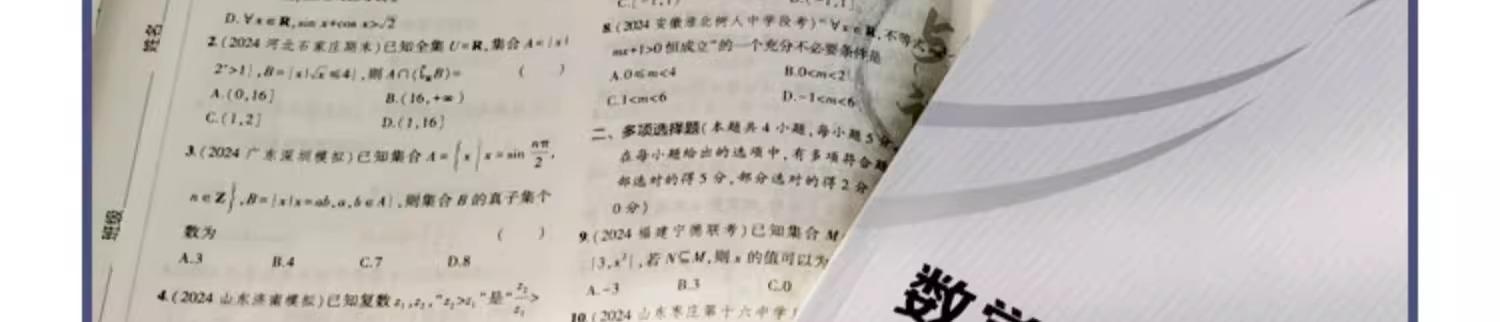 姓名
班级
D.∀x∈R,sin x+cos x>√2
2.(2024 河北石家庄期末)已知全集 U=R,集合 A={x|
2ˣ>1},B={x|√x≤4},则 A∩(∁ᵤB)= ( )
A.(0,16] B.(16,+∞)
C.(1,2] D.(1,16]
3.(2024 广东深圳模拟)已知集合 A={x|x=sin nπ/2,
n∈Z},B={x|x=ab,a,b∈A},则集合 B 的真子集个
数为 ( )
A.3 B.4 C.7 D.8
4.(2024 山东济南模拟)已知复数 z₁,z₂,“z₂>z₁”是“z₂/z₁>
8.(2024 安徽淮北树人中学段考)“∀x∈R,不等式
mx+1>0 恒成立”的一个充分不必要条件是
A.0≤m<4 B.0<m<2
C.1<m<6 D.-1<m<6
二、多项选择题(本题共 4 小题,每小题 5 分,
在每小题给出的选项中,有多项符合题
部选对的得 5 分,部分选对的得 2 分
0 分)
9.(2024 福建宁德联考)已知集合 M
{3,x²},若 N⊆M,则 x 的值可以为
A.-3 B.3 C.0
10.(2024 山东枣庄第十六中学月
数学